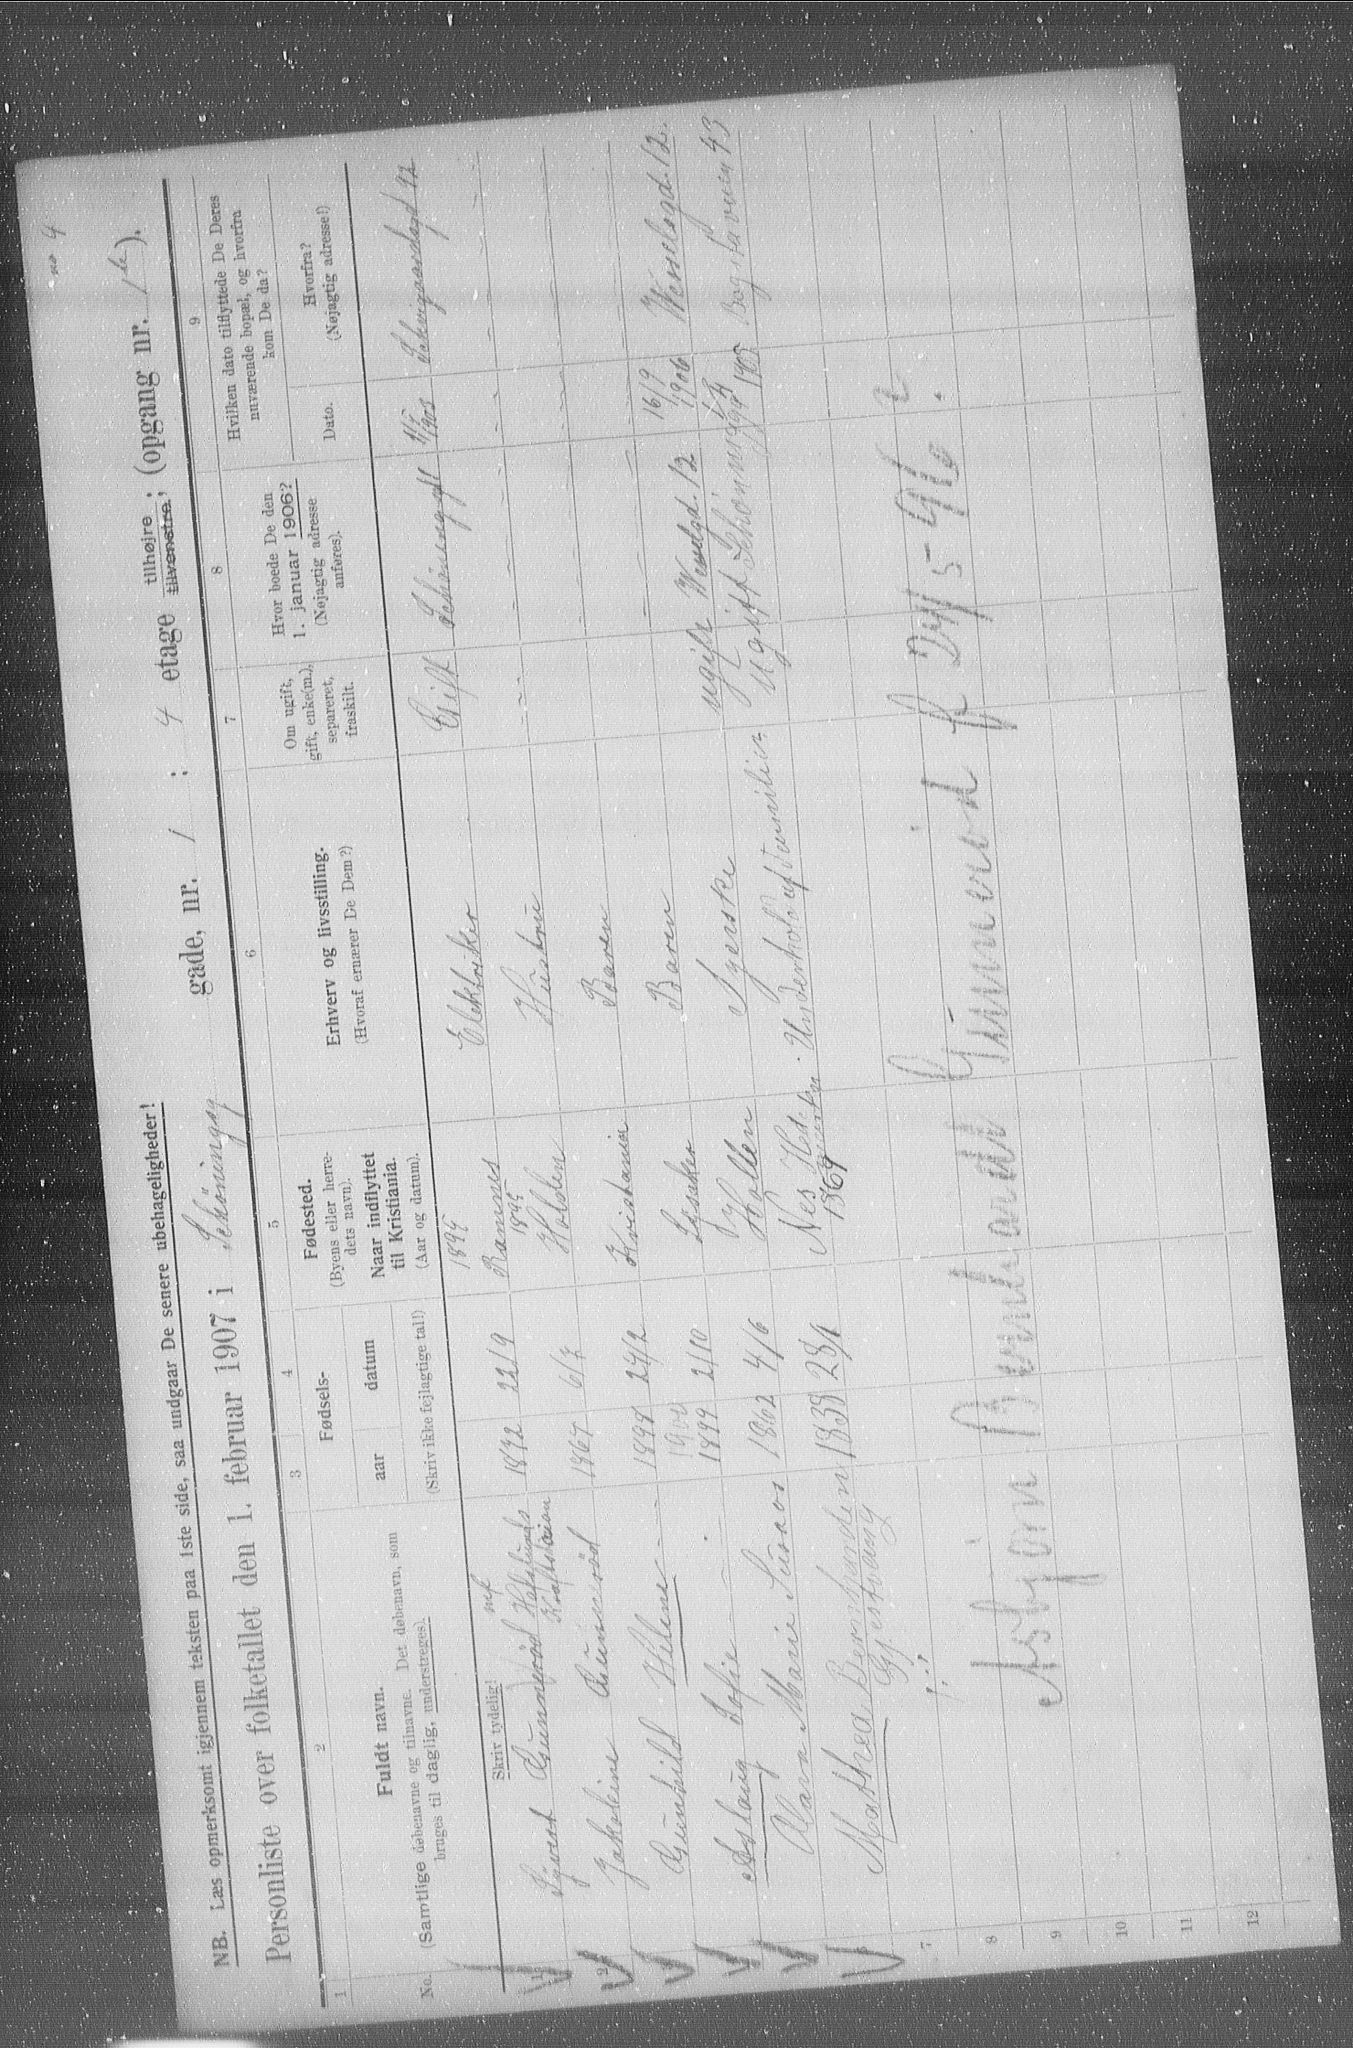 no 4
NB. Læs opmerksomt igjennem teksten paa 1ste side, saa undgaar De senere ubehageligheder!
Personliste over folketallet den 1. februar 1907 i Schöningsg gade, nr. 1 ; 4 etage tilhøjre ; tilvenstre; (opgang nr. ).
1 2 3 4 5 6 7 8 9
No.
Fuldt navn.
(Samtlige døbenavne og tilnavne. Det døbenavn, som
bruges til daglig, understreges).
Skriv tydelig!
Fødsels-
aar datum
(Skriv ikke fejlagtige tal!)
Fødested.
(Byens eller herre-
dets navn).
Naar indflyttet
til Kristiania.
(Aar og datum).
Erhverv og livsstilling.
(Hvoraf ernærer De Dem?)
Om ugift,
gift, enke(m.),
separeret,
fraskilt.
Hvor boede De den
1. januar 1906?
(Nøjagtig adresse
anføres).
Hvilken dato tilflyttede De Deres
nuværende bopæl, og hvorfra
kom De da?
Dato.
Hvorfra?
(Nøjagtig adresse!)
1895
Gunnerød Hafslunds 1872 22/9 Bamnes Elektriker Gift Schöningsg 1 Schweigaardsgd 12
Kraftstation
1895
Jakobine Gunnerød 1867 6/7 Holden Hustru
Gunhild Helene 1898 27/2 Kristiania Barn
1900
Aslaug Sofie 1899 2/10 Lysaker Barn
Marie 1862 4/6 Holden Syerske ugift Wesselsgd. 12 16/9 1906 Wesselsgd. 12.
Mathea Berntsinden 1838 28/1 Nes Hed. Underholdt af Familien Ugift Schöningsgd 4 1905 Bogstadveien 43
Gjestvang
1869
7
8
9
10
11
12
Asbjørn Bernhardt Gunnerød f 24/5-